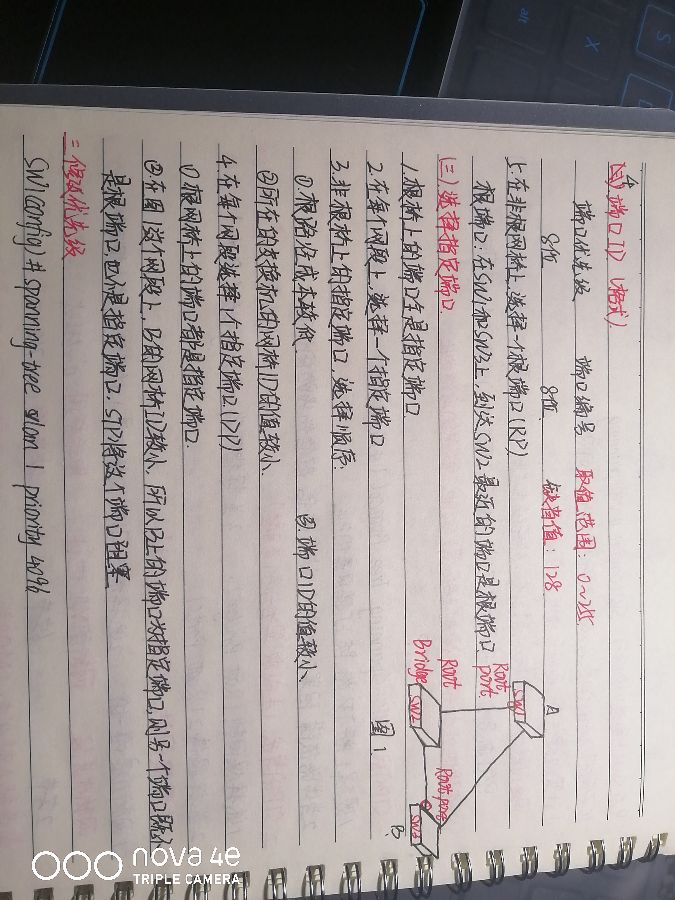 4
(四)端口ID(格式)
端口优先级 端口编号 取值范围:0~255
8位 8位 缺省值:128
5.在非根网桥上,选择一个根端口(RP)
根端口:在SW1和SW3上,到达SW2最近的端口是根端口
(三)选择指定端口
1.根桥上的端口全是指定端口
2.在每个网段上,选择一个指定端口
3.非根桥上的指定端口,选择顺序:
①根路径成本较低
③端口ID的值较小
②所在的交换机的网桥ID的值较小
4.在每个网段选择1个指定端口(DP)
①根网桥上的端口都是指定端口
②在 这个网段上,B的网桥ID较小,所以B上的端口为指定端口,则另一个端口既不
是根端口,也不是指定端口,STP将这个端口阻塞
二修改优先级
SW1(config)# spanning-tree vlan 1 priority 4096
A
SW1
Root
port
Root
Bridge
SW2
图1
Root port
SW3
B
nova 4e
TRIPLE CAMERA
S
X
alt